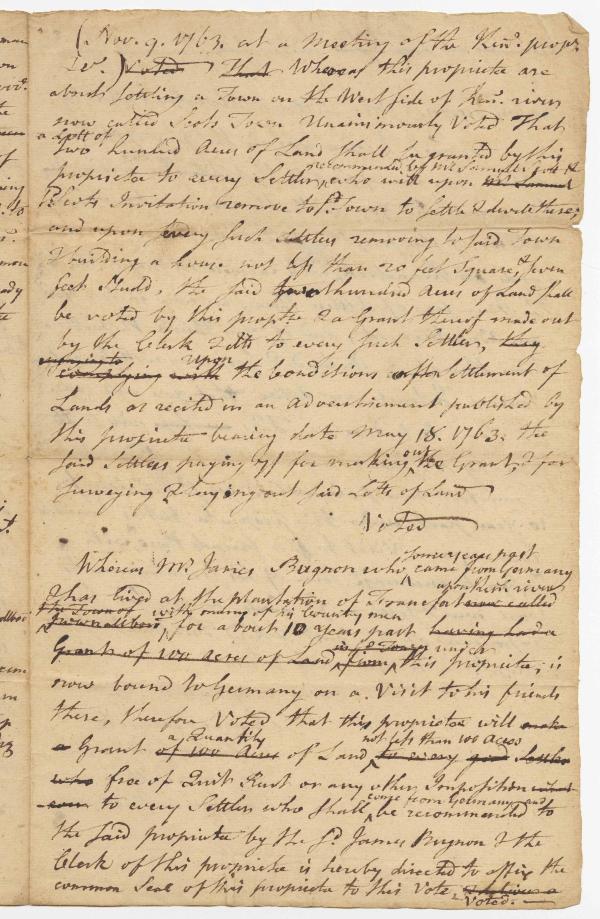 (Nov. 9. 1763. at a Meeting of the Ken. propr
&c.) Voted That Whereas this propriete are
about settling a Town on the West side of Ken. river
now called Scots Town Unanimously Voted That
a Lott of
two hundred Acres of Land shall be granted by this
recommended by Mr Samuel
propriete to every Settler, who will upon Mr Samuel
Scots Invitation remove to sd Town to settle & dwell there;
and upon every such settlers removing to said Town
& building a house not less than 20 feet Square, & seven
feet Studd, the said two hundred Acres of Land shall
be voted by this propte & a Grant thereof made out
by the Clerk to every such Settler, they
upon
complying with the Conditions of Settlement of
Lands as recited in an advertisement published by
this propriete bearing date May 18. 1763. the
said Settlers paying for making out the Grant, & for
Surveying & laying out said Lotts of Land
Voted
some years past
Whereas Mr. James Bugnon who came from Germany
upon Ken. river
& has lived at the plantation of Francfort now called
the Town of with many of his Country men
for about 10 years past having had a
under
Grant of 100 acres of Land from this propriete, is
now bound to Germany on a Visit to his friends
there, therefore Voted that this propriete will make
a Quantity not less than 100 Acres
a Grant of 100 Acres of Land to every good Settler
who free of Quit Rent or any other Imposition
come from Germany and
to every Settler who shall be recommended to
the said propriete by the sd James Bugnon & the
Clerk of this propriete is hereby directed to affix the
common Seal of this propriete to this Vote,
Voted.